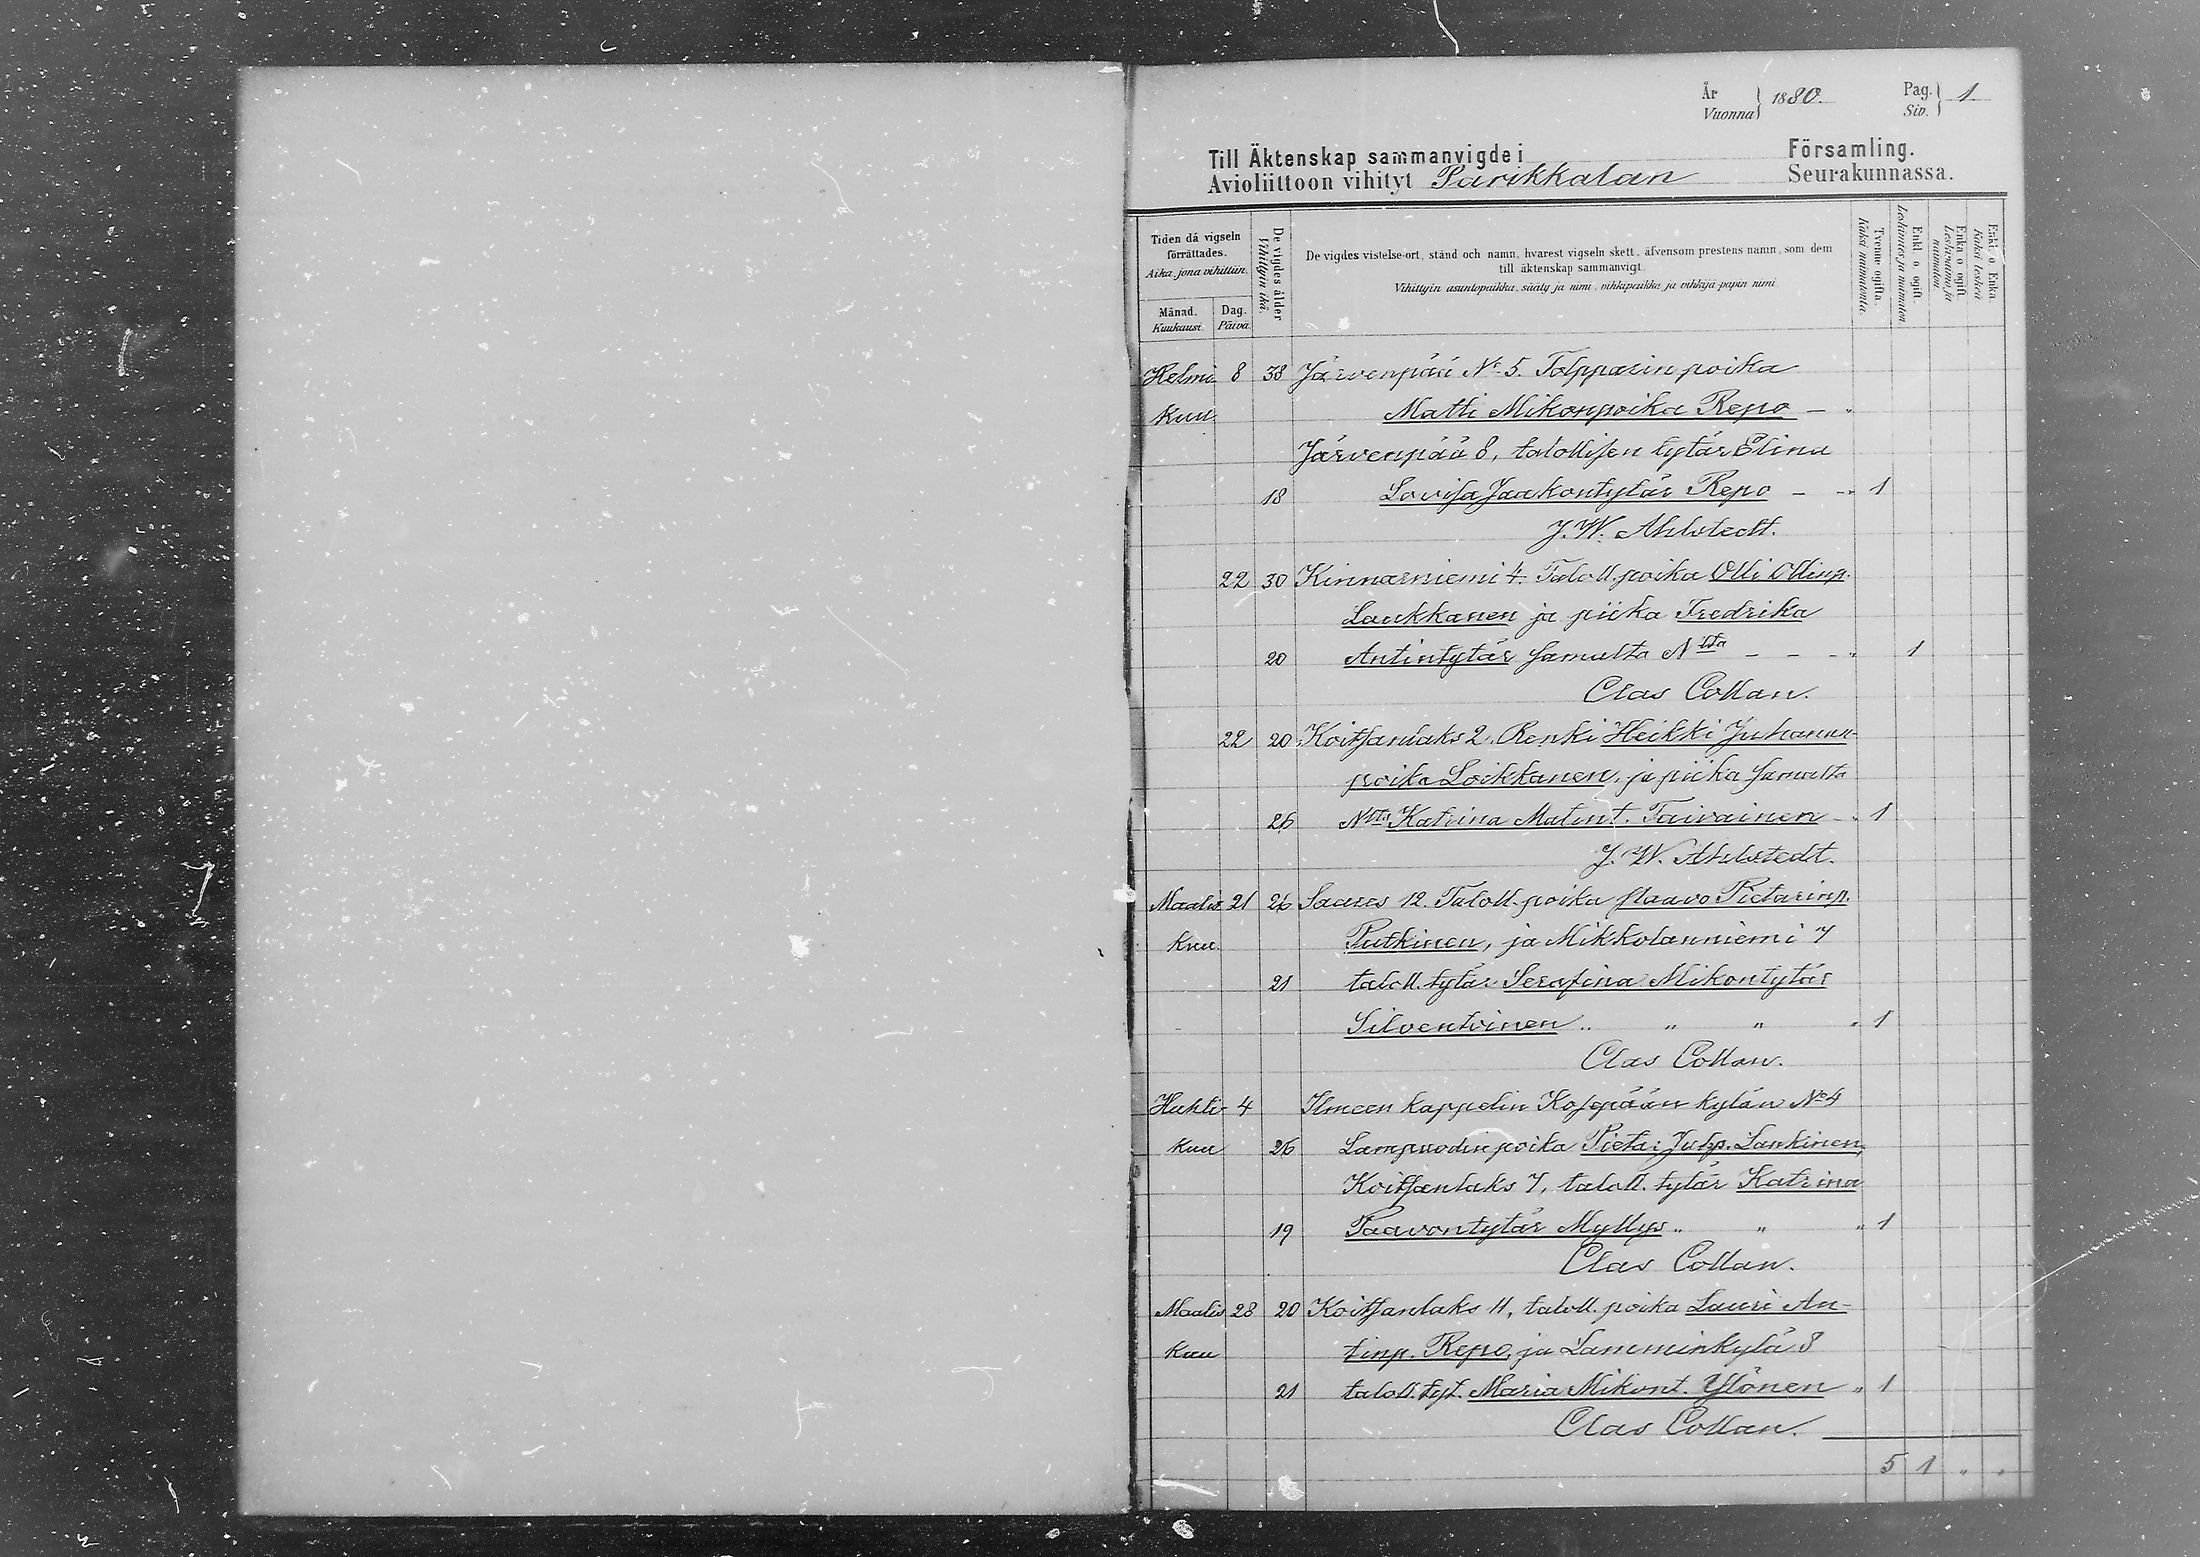 År Vuonna } 1880. Pag. Siv. } 1
Till Äktenskap sammanvigde i Församling.
Avioliittoon vihityt Parikkalan Seurakunnassa.
Tiden då vigseln förrättades.
Aika, jona vihittiin.
Månad. Kuukausi.
Dag. Päivä.
De vigdes ålder
Vihittyin ikä.
De vigdes vistelse-ort, stånd och namn, hvarest vigseln skett, äfvensom prestens namn, som dem
till äktenskap sammanvigt.
Vihittyin asuntopaikka, sääty ja nimi, vihkipaikka ja vihkijä-papin nimi.
Tvenne ogifta.
Kaksi naimatonta.
Enkl. o. ogift.
Leskimies ja naimaton.
Enka o. ogift.
Leskivaimo ja naimaton.
Enkl. o. Enka.
Kaksi leskeä
Helmi- 8 38 Järvenpää No 5. Tolpparin poika
kuu Matti Mikonpoika Repo – "
Järvenpää 8, talollisen tytär Elina
18 Lovisa Jaakontytär Repo – – " 1
J. W. Ahlstedt.
22 30 Kinnarniemi 4. Taloll. poika Olli Ollinp.
Laukkanen ja piika Fredrika
20 Antintytär samalta N:lta – – – " 1
Clas Collan.
22 20 Koitsanlaks 2. Renki Heikki Juhanan-
poika Loikkanen, ja piika samalta
26 N:lta Katrina Matint. Taivainen – " 1
J. W. Ahlstedt.
Maalis 21 26 Saares 12. Taloll. poika Paavo Pietarinp.
kuu Putkinen, ja Mikkolanniemi 7
21 taloll. tytär Serafina Mikontytär
Silventoinen " " " " 1
Clas Collan.
Huhti- 4 Ilmeen kappelin Kosepään kylän No 4
kuu 26 Lampuodin poika Pietari Juhp. Lankinen,
Koitsanlaks 7, taloll. tytär Katrina
19 Paavontytär Myllys " " " 1
Clas Collan.
Maalis 28 20 Koitsanlaks 11, taloll. poika Lauri An-
kuu tinp. Repo, ja Lamminkylä 8
21 taloll. tyt. Maria Mikont. Ylönen " 1
Clas Collan.
5 1 " "